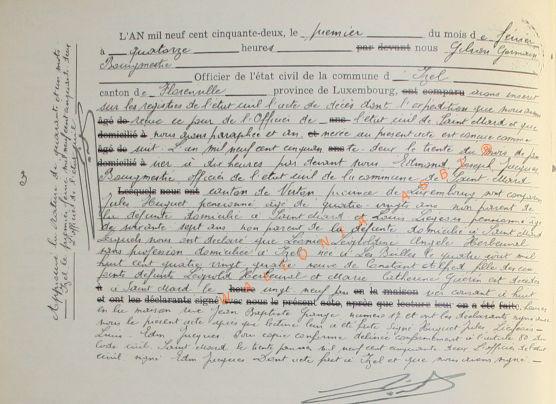 L'AN mil neuf cent cinquante-deux, le premier du mois de février
à quatorze heures par devant nous Gilson Germain
Bourgmestre
Officier de l'état civil de la commune d'Izel
canton de Florenville province de Luxembourg, ont comparu avons inscrit
sur les registres de l'état civil l'acte de décès dont l'expédition que nous avons
âgé de reçue ce jour de l'Officier de l'état civil de Saint Mard et que
domicilié à nous avons paraphée et an et nerce au présent acte est conçue comme
âgé de suit. L'an mil neuf cent cinquante deux le trente du mois de jan
domicilié à vier à dix heures par devant nous Edmond Jacques
Bourgmestre officier de l'état civil de la commune de Saint Mard
Lesquels nous ont canton de Virton province de Luxembourg ont comparu
Jules Huquet pensionné âgé de quatre-vingts ans non parent de
la défunte domicilié à Saint Mard et Louis pensionné âgé
de soixante sept ans non parent de la défunte domicilié à Saint Mard
Lesquels nous ont déclaré que Léonie Léopoldine Angèle Herbeuval
sans profession domiciliée à Izel née à Les Bulles le quatre août mil
huit cent quatre vingt quatre veuve de Constant fille des con
joints défunts Herbeuval et Marie Catherine Guérin est décédée
à Saint Mard le heure vingt neuf en la maison de courant à huit
et ont les déclarants signé avec nous le présent acte, après que lecture leur en a été faite, heures
en la maison rue Jean Baptiste Grange numéro 17 et ont les déclarants signé avec
nous le présent acte après que lecture leur a été faite Signé Huquet Jules
Louis Edm Jacques Pour copie conforme délivrée conformément à l'article 80 du
Code civil Saint Mard le trente janvier mil neuf cent cinquante deux L'officier de l'état
civil signé Edm Jacques Dont acte fait à Izel et que nous avons signé
Approuvé la rature de quarante et un mots
Izel le premier février mil neuf cent cinquante deux
L'officier de l'état civil
WALLONIA ASBL